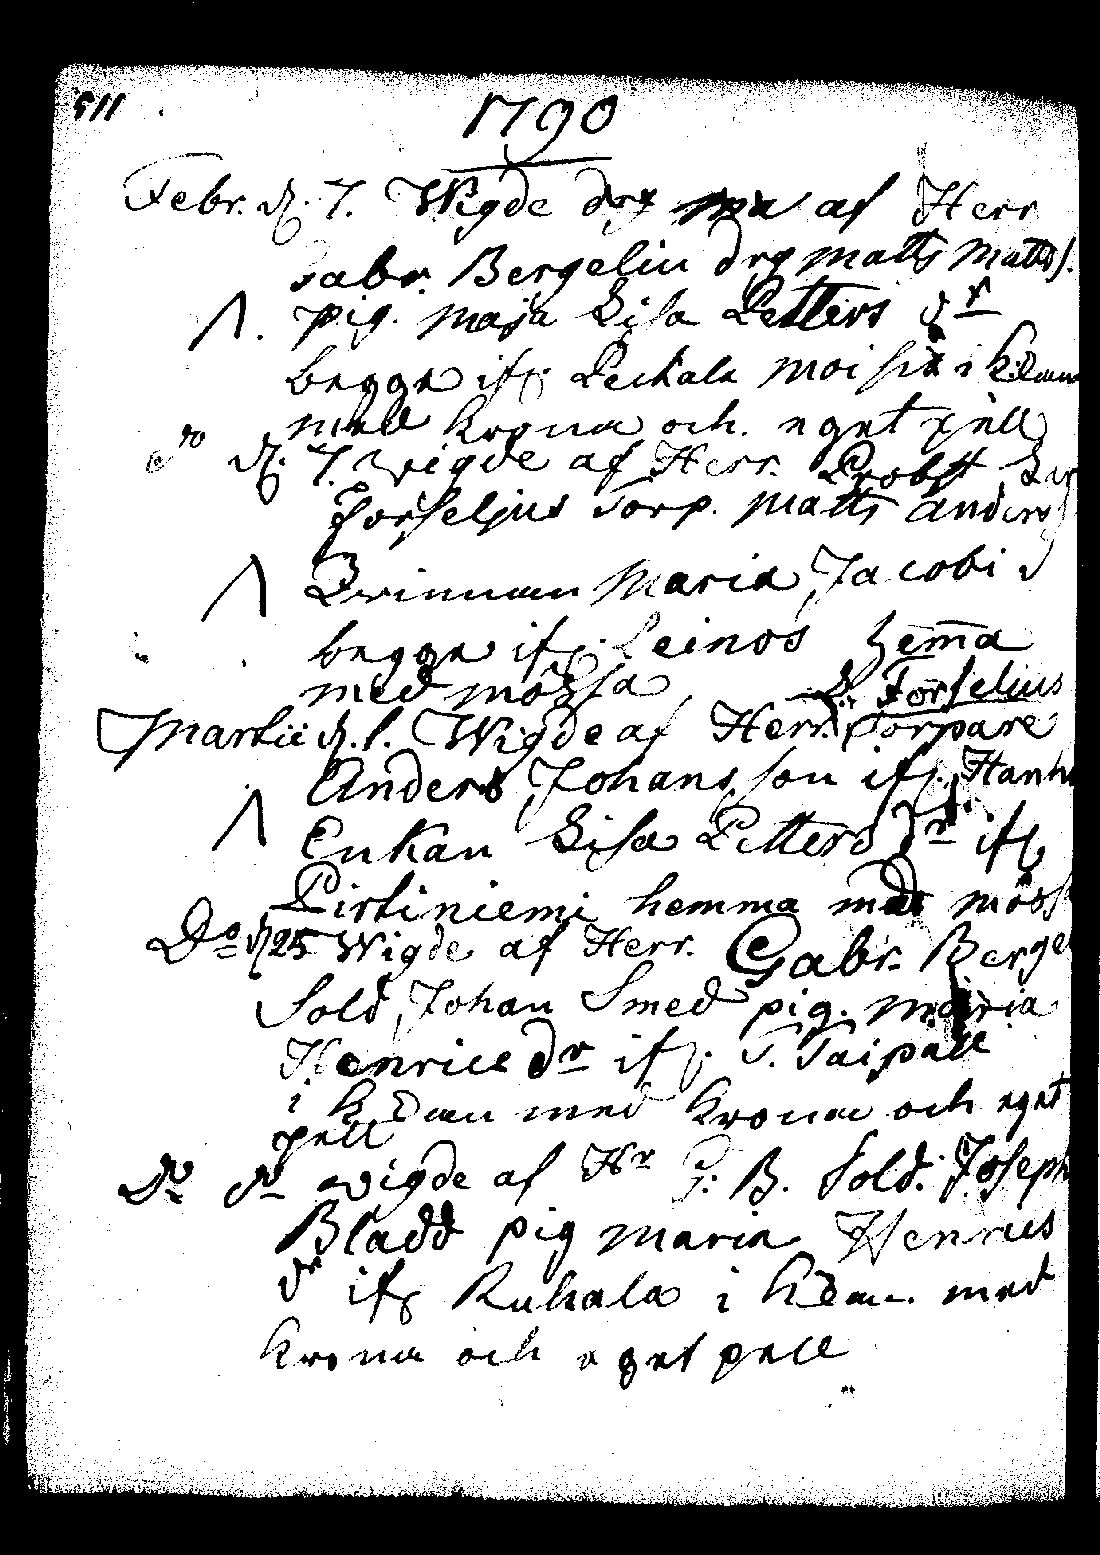 511
1790
Febr. d. 7. Wigde drg af Herr
Gabr. Bergelin drg Matts Matts s.
pig. Maja Lisa Petters dr
begge ifr. Peckala Moisia i Kldun
med krona och eget pell
do d. 7. wigde af Herr. Probst
Forseljus Torp. Matts Anders
Qvinnan Maria Jacobi d
begge ifr. Leinos hem̅a
med mössa D. Forselius
Martii d. 1. Wigde af Herr. Torpare
Anders Johansson ifr. Hanh
Enkan Lisa Petters dr ifr
Pirtiniemi hemma med möss
Do d 25 Wigde af Herr. Gabr. Berge
Sold Johan Smed pig. Maria
Henrics dr ifr. T. Taipale
i med krona och eget
pell
Do do wigde af Hr G: B. Sold. Joseph
Bladd pig Maria Henrics
dr ifr Kuhala i med
krona och eget pell